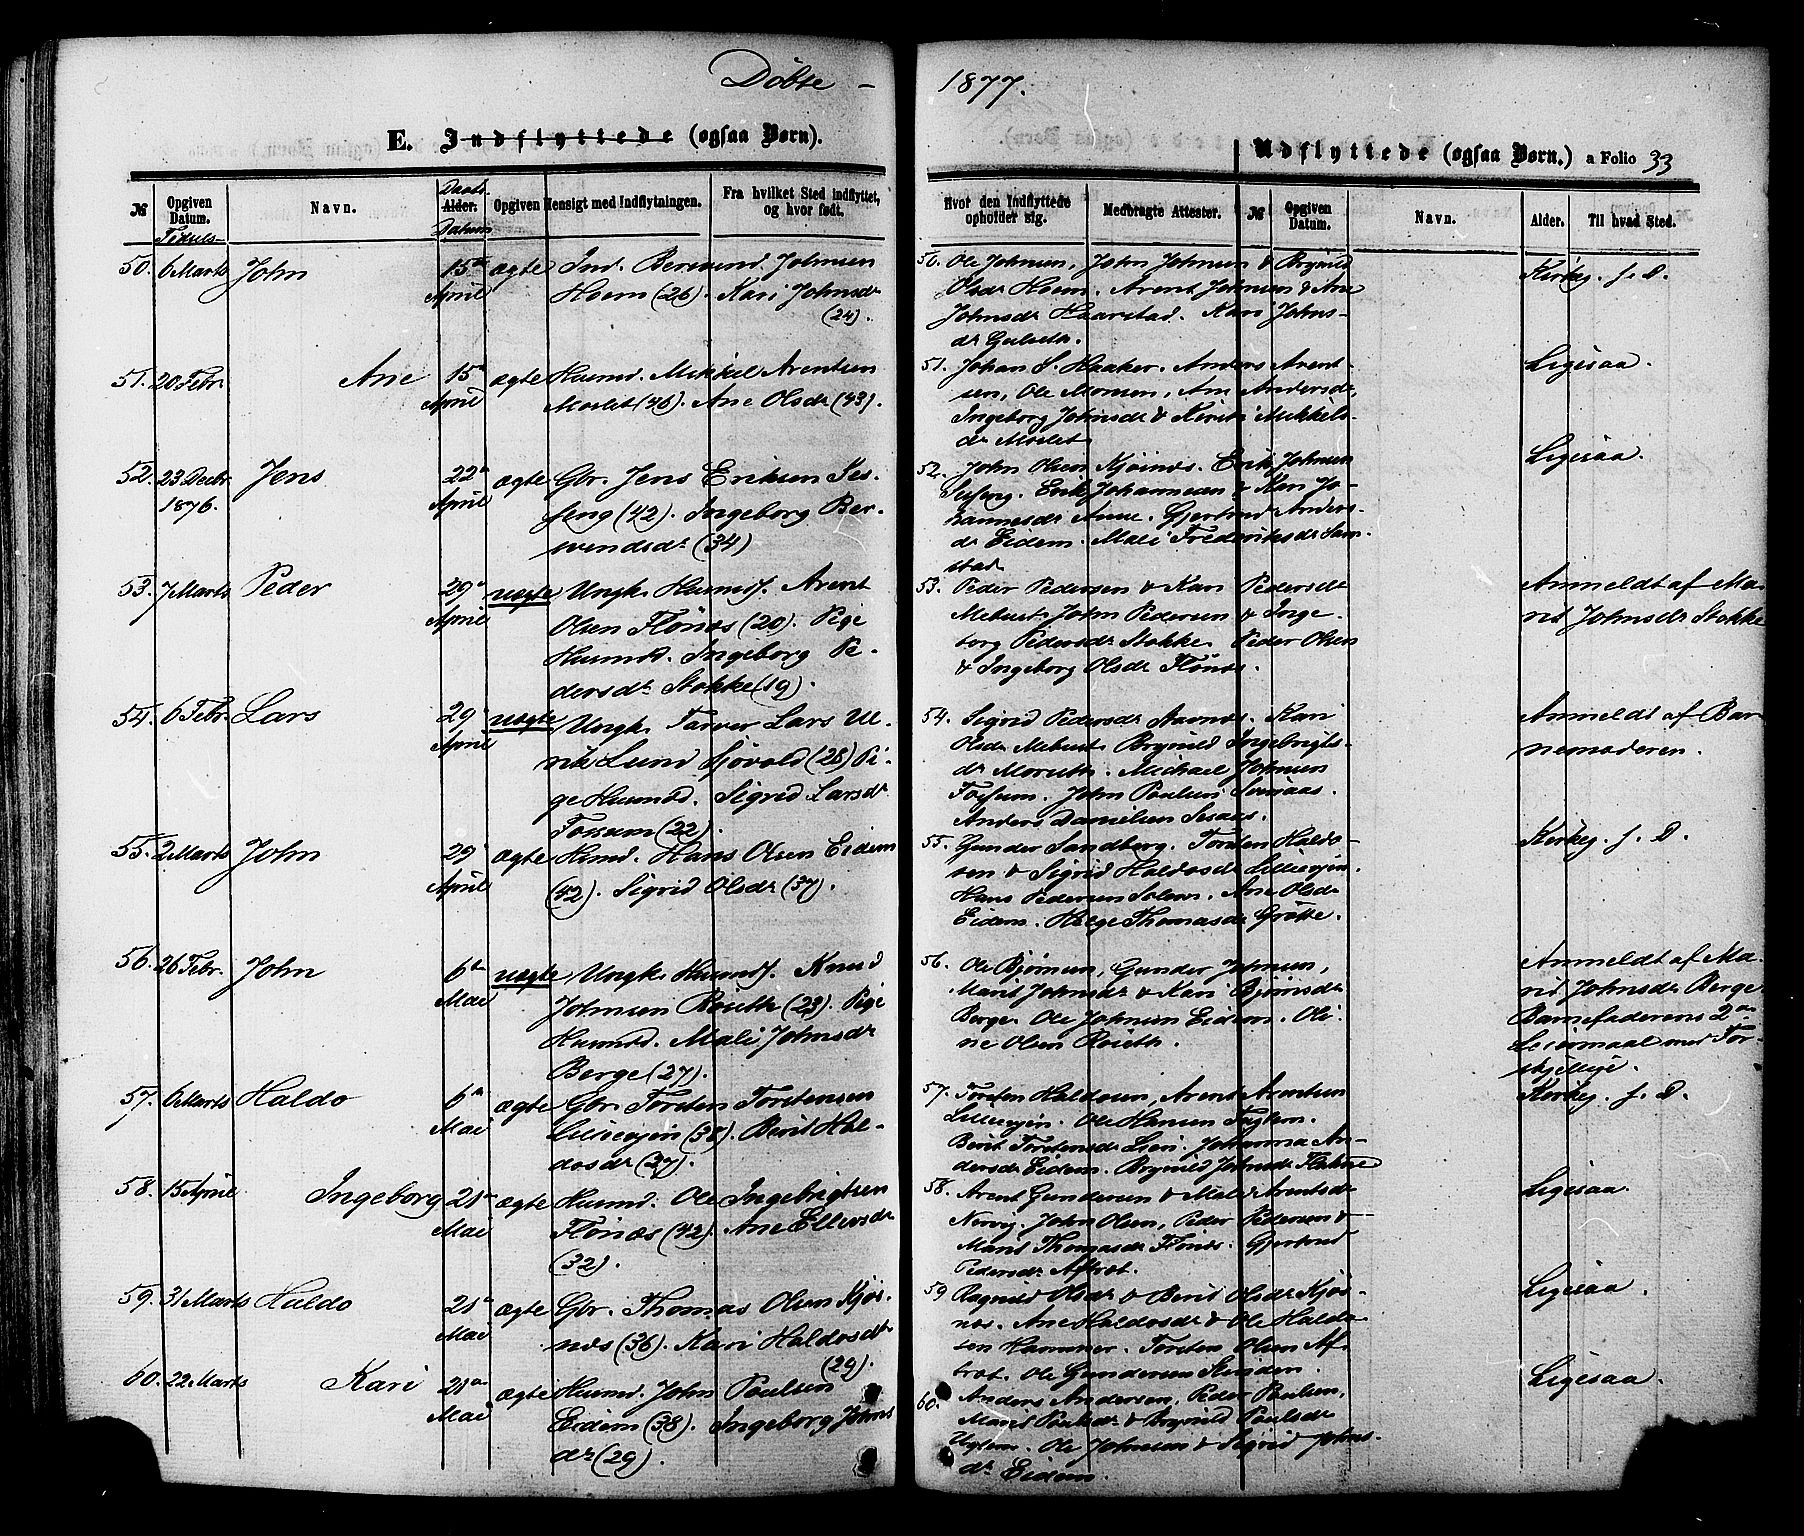 Döbte – 1877.
E. Indflyttede (ogsaa Børn).
Udflyttede (ogsaa Børn.) a Folio 33
№ Opgiven Datum. Navn. Alder. Opgiven Hensigt med Indflytningen. Fra hvilket Sted indflyttet, og hvor født.
Fødsels- Daabs Datum
Hvor den Indflyttede opholder sig. Medbragte Attester. № Opgiven Datum. Navn. Alder. Til hvad Sted.
50. 6 Marts John 15de April ægte Ind. Bermund Johnsen
Hoem (26). Kari Johnsdr
(24).
51. 20 Febr. Ane 15de April ægte Huusmd. Mikkel Arentsen
Moslet (46). Ane Olsdr (43).
52. 23 Decbr. 1876. Jens 22de April ægte Gbr. Jens Eriksen Ses-
seng (42). Ingeborg Ber-
wendsdr (34)
53. 7 Marts Peder 29de April uægte Ungk. Huusmdsf. Arent
Olsen Flönæs (20). Pige
Huusmdd. Ingeborg Pe-
dersdr Stokke (19).
54. 6 Febr. Lars 29de April uægte Ungk. Farver Lars Ul-
rik Lund Sjövold (28) Pi-
ge Huusmdd. Sigrid Larsdr
Fossum (22).
55. 2 Marts John 29de April ægte Husmd. Hans Olsen Eidem
(42). Sigrid Olsdr (37).
56. 26 Febr. John 6te Mai uægte Ungk. Huusmdsf. Knud
Johnsen Roieth (23). Pige
Huusmdd. Mali Johnsdr
Berge (27).
57. 6 Marts Haldo 6te Mai ægte Gbr. Torsten Torstensen
Lillievjen (38). Berit Hal-
dosdr (27).
58. 15 April Ingeborg 21de Mai ægte Huusmd. Ole Ingebrigtsen
Flönæs (42). Ane Ellevsdr
(32).
59. 31 Marts Haldo 21de Mai ægte Gbr. Thomas Olsen Kjös-
næs (36). Kari Haldosdr
(29).
60. 22 Marts Kari 21de Mai ægte Huusmd. John Poulsen
Eidem (38). Ingeborg Johns
dr (29).
50. Ole Johnsen, John Johnsen & Brynild
Olsdr Hoem. Arent Johnsen & Ane
Johnsdr Haarstad. Kari Johns-
dr Gulseth.
Kirkeg. f. D.
51. Johan S. Haaker. Anders Arent-
sen, Ole Monsen, Ane Andersdr,
Ingeborg Johnsdr & Kirsti Mikkels-
dr Moslet
Ligesaa.
52. John Olsen Kjösnæs. Erik Johnsen
Seseng. Erik Johannesen & Kari Jo-
hannesdr Aune. Gjertrud Anders-
dr Eidem. Mali Frederiksdr Sam-
stad
Ligesaa.
53. Peder Pedersen & Kari Pedersdt
Mebust. John Pedersen & Inge-
borg Pedersdr Stokke. Peder Olsen
& Ingeborg Olsdr Flönæs.
Anmeldt af Ma-
rit Johnsdr Stokke
54. Sigrid Pedersdr Aarnæs. Kari
Olsdr Mebust. Brynild Ingebrigts-
dr Morseth. Michael Johnsen
Fossum. John Poulsen Svinaas.
Anders Danielsen Sesaas.
Anmeldt af Bar-
nemoderen.
55. Gunder Sandberg. Torsten Haldo-
sen & Sigrid Haldosdr Lillievjen.
Hans Pedersen Solem. Ane Olsdr
Eidem. Helge Thomasdr Grötte.
Kirkeg. f. D.
56. Ole Bjørnsen, Gunder Johnsen,
Marit Johnsdr & Kari Bjørnsdr
Berge. Ole Johnsen Eidem. Oli-
ne Olsen Roieth.
Anmeldt af Ma-
rit Johnsdr Berge
Barnefaderens 2det
Leiermaal med For-
skjellige.
57. Torsten Haldosen, Arent Arentsen
Lillievjen. Ole Hansen Fuglem.
Berit Torstensdr Lien. Johanna An-
dersdr Eidem. Brynild Johnsdr Flaknæ
Kirkeg. f. D.
58. Arent Gundersen & Mali Arentsdr
Norvig. John Olsen, Peder Pedersen &
Marit Thomasdr Flönæs. Gjertrud
Pedersdr Aftrot.
Ligesaa.
59 Ragnild Olsdr & Berit Olsdr Kjös-
næs. Ane Haldosdr & Ole Haldo-
sen Hammer. Torsten Olsen Af-
trot. Ole Gundersen Kinden.
Ligesaa.
60. Anders Andersen, Peder Poulsen,
Marit Poulsdr & Brynild Poulsdr
Uglem. Ole Johnsen & Sigrid Johns-
dr Eidem.
Ligesaa.